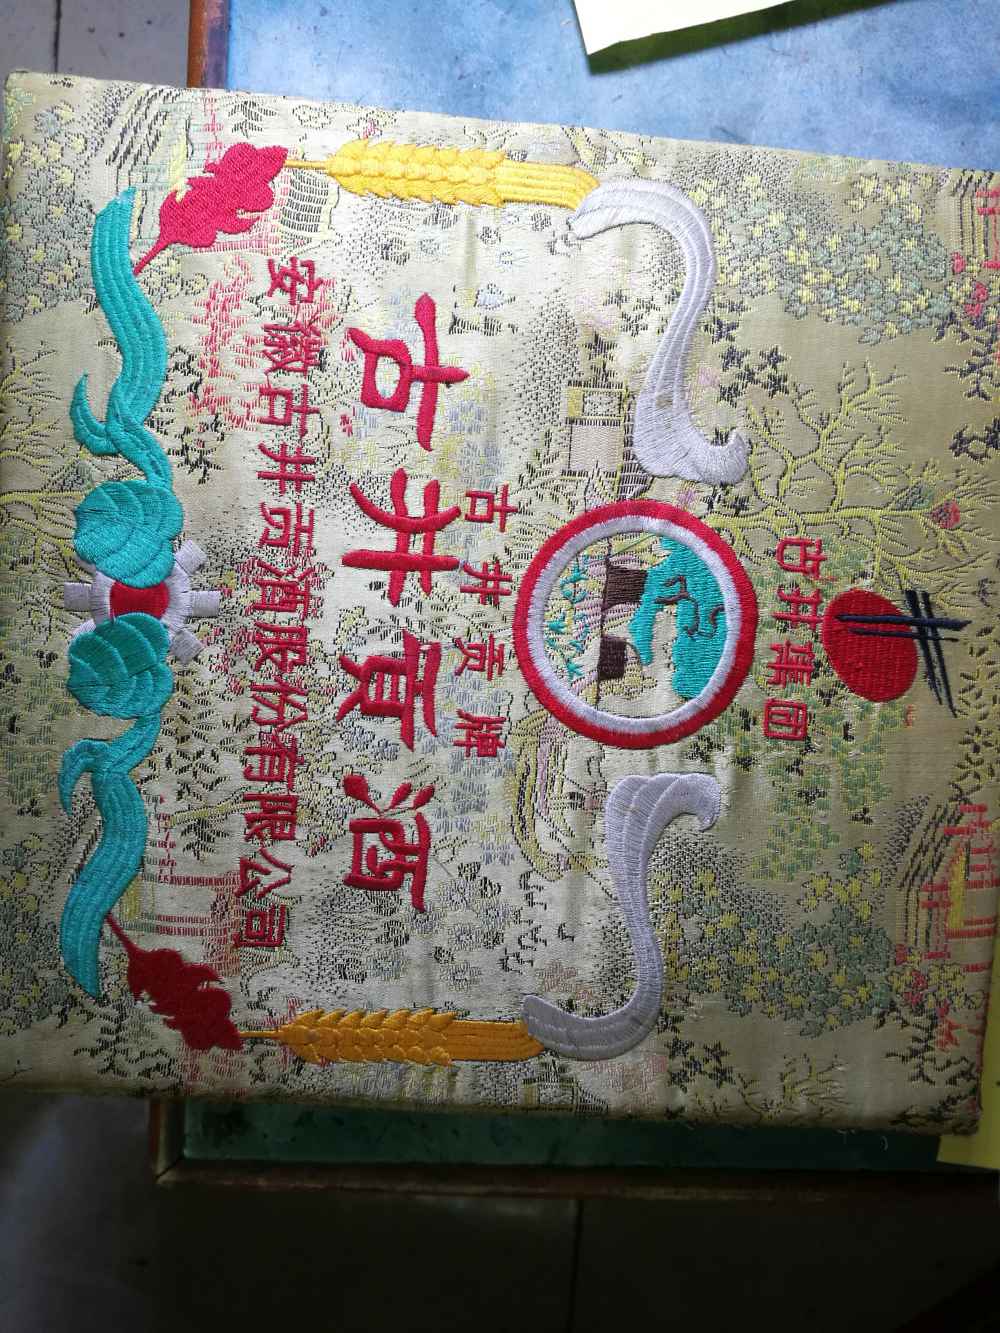 古井集团
古井贡牌
古井貢酒
安徽古井贡酒股份有限公司